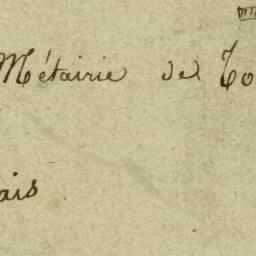 Métairie de To
ais